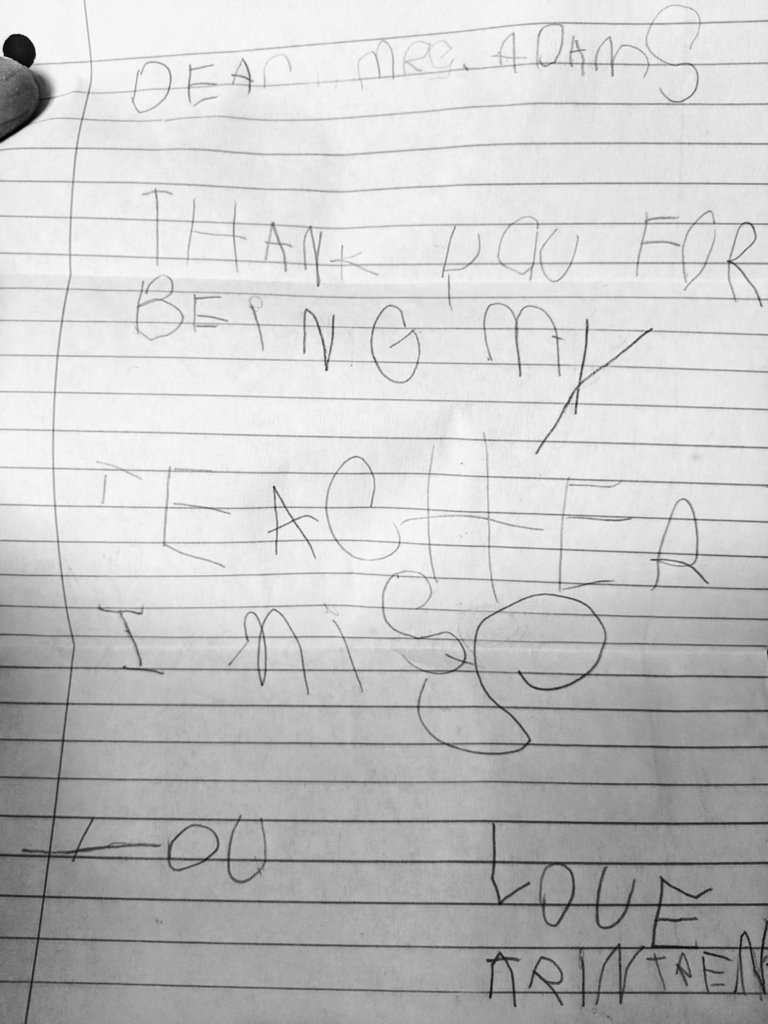 DEAr MRS. ADAMS
THANK YOU FOR
BEING MY
TEACHER
I MISS
YOU
LOVE